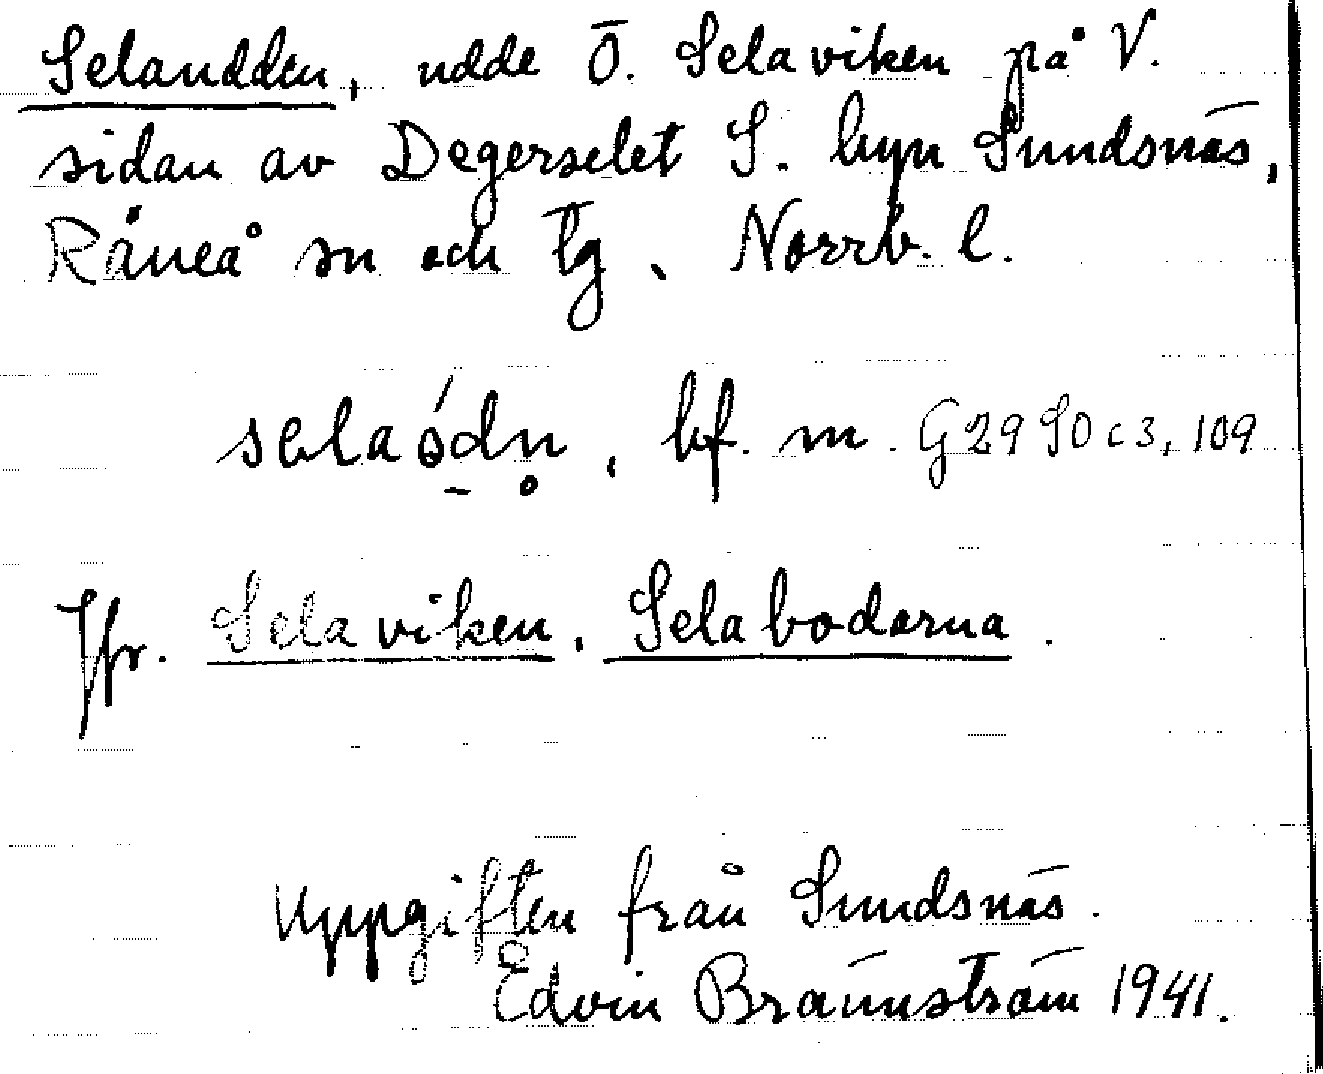 Selaudden, udde Ö. Selaviken på V.
sidan av Degerselet S. byn Sundsnäs,
Råneå sn och tg, Norrb. l.
bf. m. G29 SO c3, 109
Jfr. Selaviken, Selabodarna.
Uppgiften från Sundsnäs.
Edvin Brännström 1941.